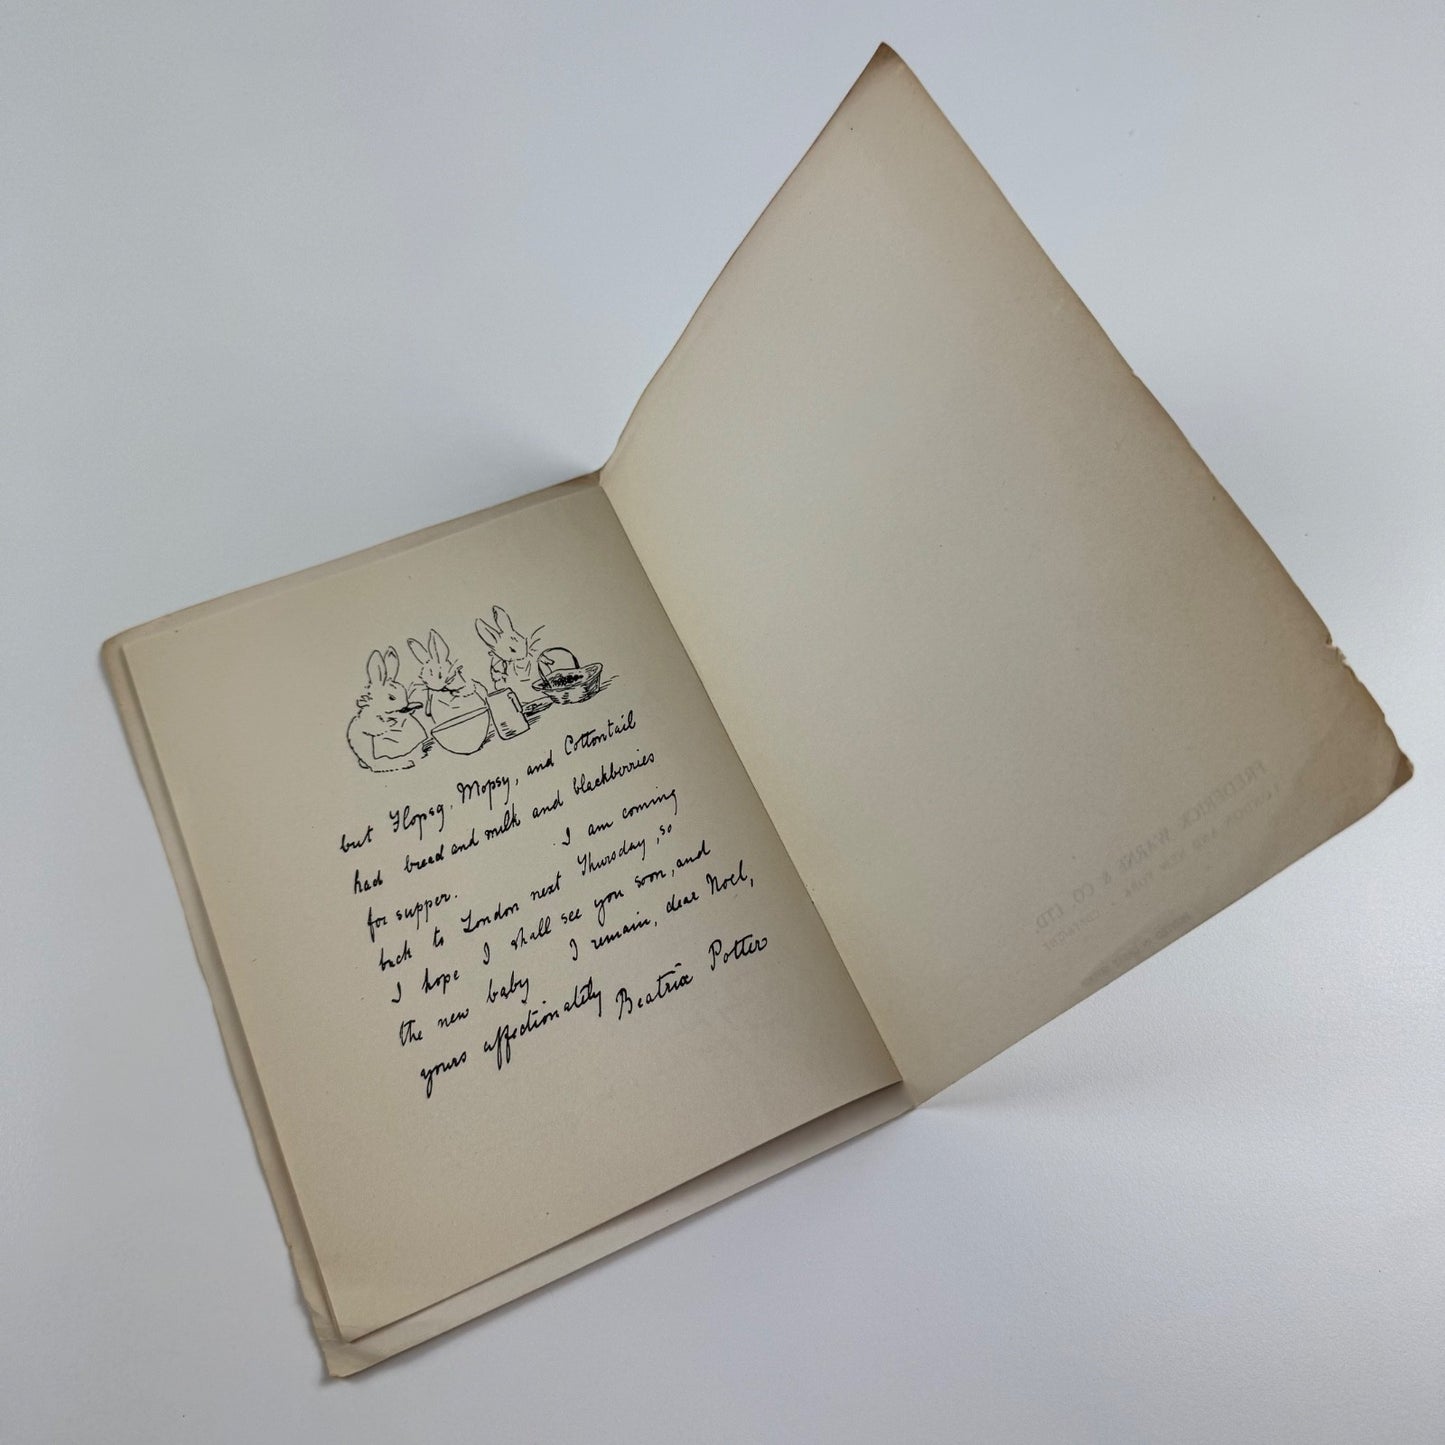 but Flopsy, Mopsy, and Cottontail
had bread and milk and blackberries
for supper. I am coming
back to London next Thursday, so
I hope I shall see you soon, and
the new baby I remain, dear Noel,
yours affectionately
Beatrix Potter
FREDERICK WARNE & CO., LTD.
LONDON AND NEW YORK